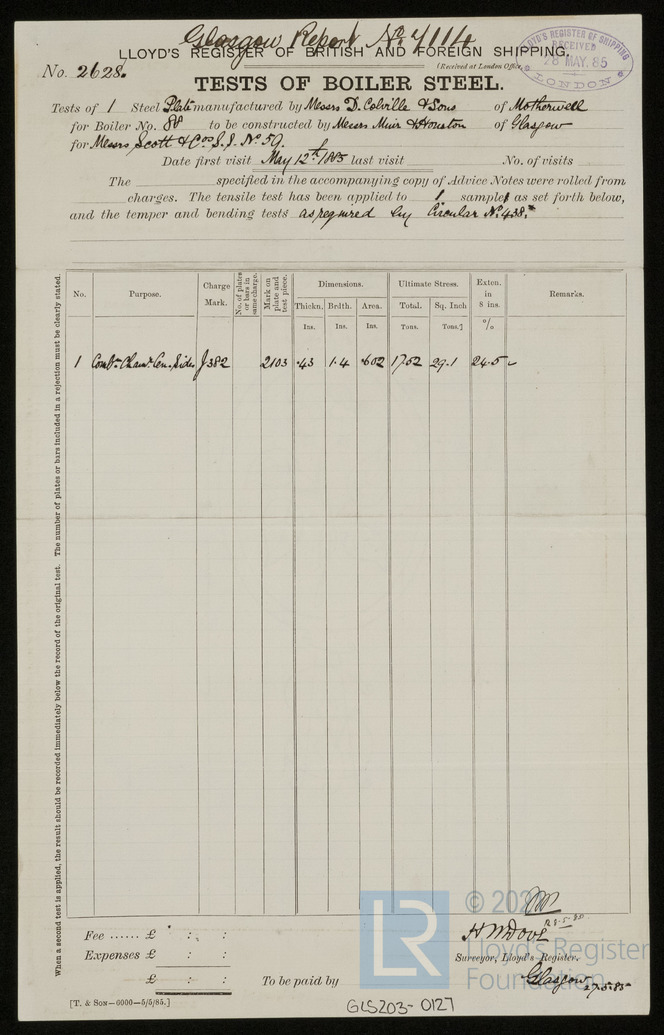 Glasgow Report No. 7114
LLOYD'S REGISTER OF BRITISH AND FOREIGN SHIPPING.
(Received at London Office,
LLOYD'S REGISTER OF SHIPPING RECEIVED 28 MAY. 85 LONDON
No. 2628.
TESTS OF BOILER STEEL.
Tests of 1 Steel Plate manufactured by Messrs D. Colville & Sons of Motherwell
for Boiler No. 88 to be constructed by Messrs Muir & Houston of Glasgow
for Messrs Scott & Cos S.S. No. 59.
Date first visit May 12th 1885 last visit No. of visits
The specified in the accompanying copy of Advice Notes were rolled from
charges. The tensile test has been applied to 1 sample as set forth below,
and the temper and bending tests as required by Circular No. 438.
No. Purpose. Charge Mark. No. of plates or bars in same charge. Mark on plate and test piece. Dimensions. Ultimate Stress. Exten. in 8 ins. Remarks.
Thickn. Brdth. Area. Total. Sq. Inch
Ins. Ins. Ins. Tons. Tons. %
1 Combn Chamr Cen. Sides J382 2103 .43 1.4 .602 17.52 29.1 24.5
When a second test is applied, the result should be recorded immediately below the record of the original test. The number of plates or bars included in a rejection must be clearly stated.
© 202
Lloyd's Register
Foundation
LR
Fee ...... £ : :
Expenses £ : :
£ : :
H W Dove
Surveyor, Lloyd's Register.
To be paid by
Glasgow
27.5.85
[T. & SON—6000—5/5/85.]
GLS203-0127